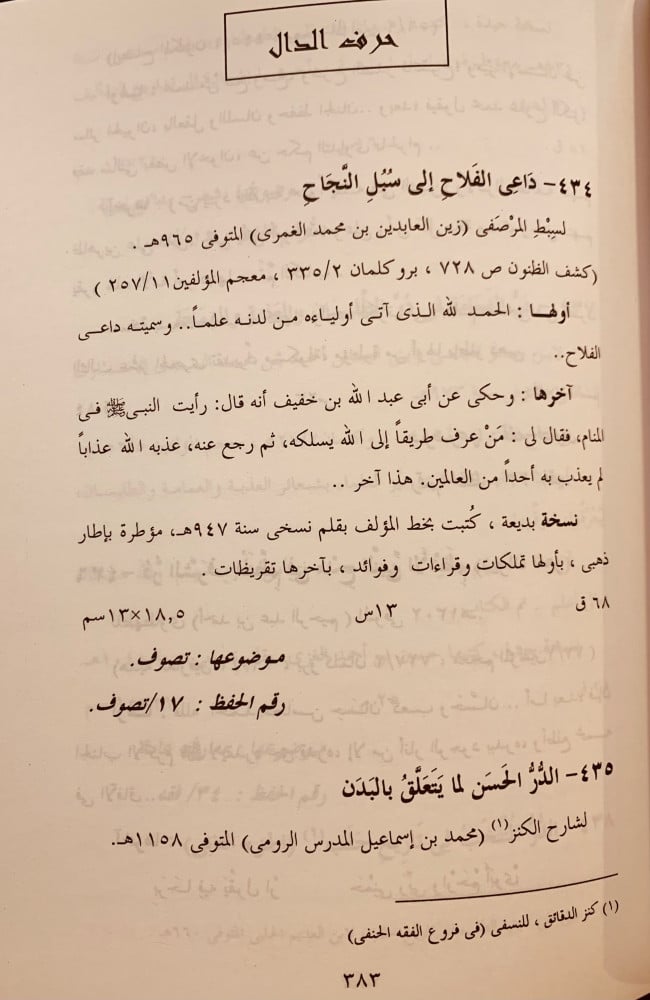 حرف الدال
٤٣٤- دَاعِى الفَلاحِ إلى سُبُلِ النَّجَاحِ
لسِبْطِ المرْصَفى (زين العابدين بن محمد الغمرى) المتوفى ٩٦٥هـ .
(كشف الظنون ص ٧٢٨ ، بروكلمان ٣٣٥/٢ ، معجم المؤلفين ٢٥٧/١١ )
أولها : الحمد لله الذى آتى أولياءه من لدنه علماً.. وسميته داعى
الفلاح..
آخرها : وحكى عن أبى عبد الله بن خفيف أنه قال: رأيت النبى ﷺ فى
المنام، فقال لى : مَنْ عرف طريقاً إلى الله يسلكه، ثم رجع عنه، عذبه الله عذاباً
لم يعذب به أحداً من العالمين. هذا آخر ..
نسخة بديعة ، كُتبت بخط المؤلف بقلم نسخى سنة ٩٤٧هـ، مؤطرة بإطار
ذهبى ، بأولها تملكات وقراءات وفوائد ، بآخرها تقريظات .
٦٨ ق ١٣س ١٣×١٨,٥سم
موضوعها : تصوف.
رقم الحفظ : ١٧/تصوف.
٤٣٥- الدُّرُّ الحَسَن لما يَتَعَلَّقُ بالبَدَن
لشارح الكنز(١) (محمد بن إسماعيل المدرس الرومى) المتوفى ١١٥٨هـ.
(١) كنز الدقائق ، للنسفى (فى فروع الفقه الحنفى)
٣٨٣